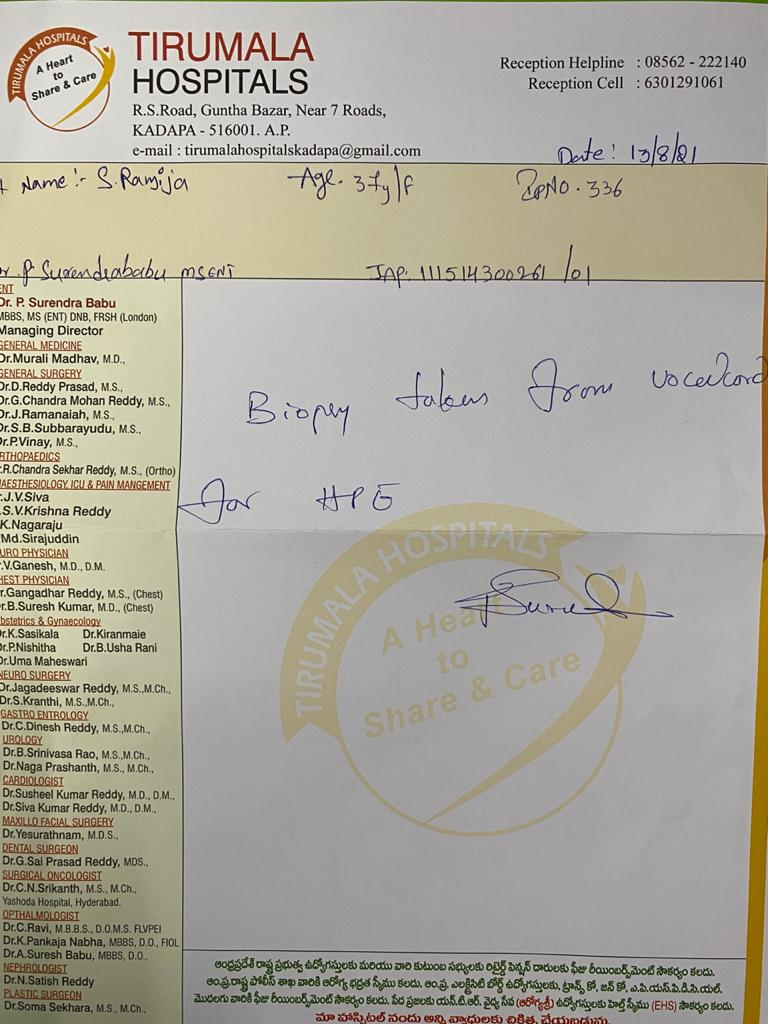 TIRUMALA HOSPITALS
A Heart
to
Share & Care
TIRUMALA
HOSPITALS
R.S.Road, Guntha Bazar, Near 7 Roads,
KADAPA - 516001. A.P.
e-mail : tirumalahospitalskadapa@gmail.com
Reception Helpline : 08562 - 222140
Reception Cell : 6301291061
Date: 13/8/21
Name:- S. Ramija Age. 37y/f IPNO. 336
P Surendrababu MSENT JAP: 111514300261/01
ENT
Dr. P. Surendra Babu
MBBS, MS (ENT) DNB, FRSH (London)
Managing Director
GENERAL MEDICINE
Dr.Murali Madhav, M.D.,
GENERAL SURGERY
Dr.D.Reddy Prasad, M.S.,
Dr.G.Chandra Mohan Reddy, M.S.,
Dr.J.Ramanaiah, M.S.,
Dr.S.B.Subbarayudu, M.S.,
Dr.P.Vinay, M.S.,
RTHOPAEDICS
.R.Chandra Sekhar Reddy, M.S., (Ortho)
NAESTHESIOLOGY, ICU & PAIN MANGEMENT
r.J.V.Siva
.S.V.Krishna Reddy
K.Nagaraju
Md.Sirajuddin
URO PHYSICIAN
.V.Ganesh, M.D., D.M.
HEST PHYSICIAN
r.Gangadhar Reddy, M.S., (Chest)
r.B.Suresh Kumar, M.D., (Chest)
bstetrics & Gynaecology
r.K.Sasikala Dr.Kiranmaie
r.P.Nishitha Dr.B.Usha Rani
Dr.Uma Maheswari
NEURO SURGERY
Dr.Jagadeeswar Reddy, M.S.,M.Ch.,
Dr.S.Kranthi, M.S.,M.Ch.,
GASTRO ENTROLOGY
Dr.C.Dinesh Reddy, M.S.,M.Ch.,
UROLOGY
Dr.B.Srinivasa Rao, M.S.,M.Ch.,
Dr.Naga Prashanth, M.S., M.Ch.,
CARDIOLOGIST
Dr.Susheel Kumar Reddy, M.D., D.M.,
Dr.Siva Kumar Reddy, M.D., D.M.,
MAXILLO FACIAL SURGERY
Dr.Yesurathnam, M.D.S.,
DENTAL SURGEON
Dr.G.Sai Prasad Reddy, MDS.,
SURGICAL ONCOLOGIST
Dr.C.N.Srikanth, M.S., M.Ch.,
Yashoda Hospital, Hyderabad.
OPTHALMOLOGIST
Dr.C.Ravi, M.B.B.S., D.O.M.S. FLVPEI
Dr.K.Pankaja Nabha, MBBS, D.O., FIOL
Dr.A.Suresh Babu, MBBS, D.O.,
NEPHROLOGIST
Dr.N.Satish Reddy
PLASTIC SURGEON
Dr.Soma Sekhara, M.S., M.Ch.,
Biopsy taken from vocalcord
for HPE
TIRUMALA HOSPITALS
A Heart
to
Share & Care
ఆంధ్రప్రదేశ్ రాష్ట్ర ప్రభుత్వ ఉద్యోగస్తులకు మరియు వారి కుటుంబ సభ్యులకు రిటైర్డ్ పెన్షన్ దారులకు ఫీజు రీయింబర్స్‌మెంట్ సౌకర్యం కలదు.
ఆం.ప్ర.రాష్ట్ర పోలీస్ శాఖ వారికి ఆరోగ్య భద్రత స్కీము కలదు. ఆం.ప్ర. ఎలక్ట్రిసిటీ బోర్డ్ ఉద్యోగస్తులకు, ట్రాన్స్ కో, జన్ కో, ఎ.పి.యస్.పి.డి.సి.యల్.
మొదలగు వారికి ఫీజు రీయింబర్స్‌మెంట్ సౌకర్యం కలదు. పేద ప్రజలకు యన్.టి.ఆర్. వైద్య సేవ (ఆరోగ్యశ్రీ) ఉద్యోగస్తులకు హెల్త్ స్కీము (EHS) సౌకర్యం కలదు.
మా హాస్పిటల్ నందు అన్ని వ్యాధులకు చికిత్స చేయబడును.